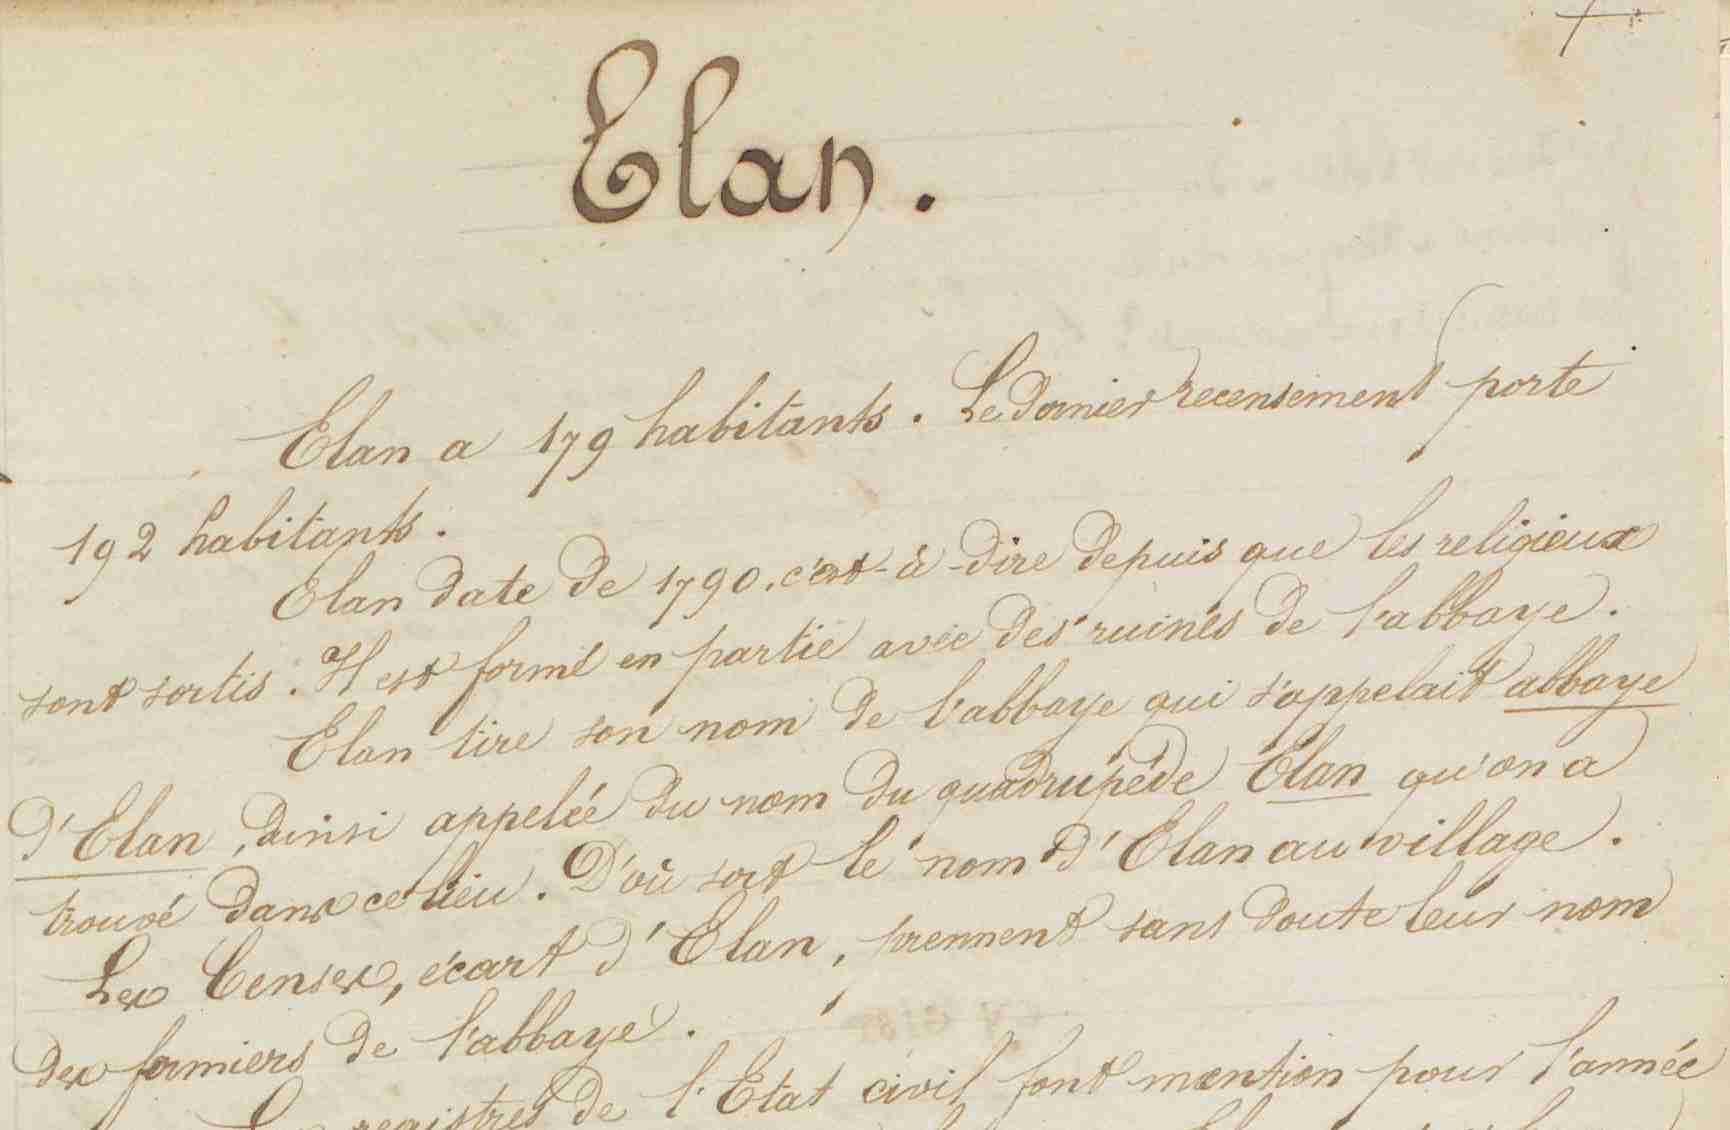 Elan.
Elan a 179 habitants. Le dernier recensement porte
192 habitants.
Elan date de 1790, c'est-à-dire depuis que les religieux
sont sortis. Il est formé en partie avec des ruines de l'abbaye.
Elan tire son nom de l'abbaye qui s'appelait abbaye
d'Elan, ainsi appelée du nom du quadrupède Elan qu'on a
trouvé dans ce lieu. D'où sort le nom d'Elan au village.
Les Censes, écart d'Elan, prennent sans doute leur nom
des fermiers de l'abbaye.
Les registres de l'Etat civil font mention pour l'année